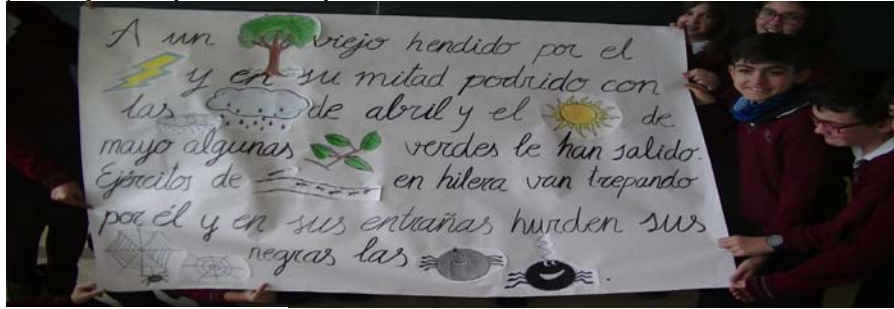 A un viejo hendido por el
y en su mitad podrido con
las de abril y el de
mayo algunas verdes le han salido.
Ejércitos de en hilera van trepando
por él y en sus entrañas hurden sus
negras las .